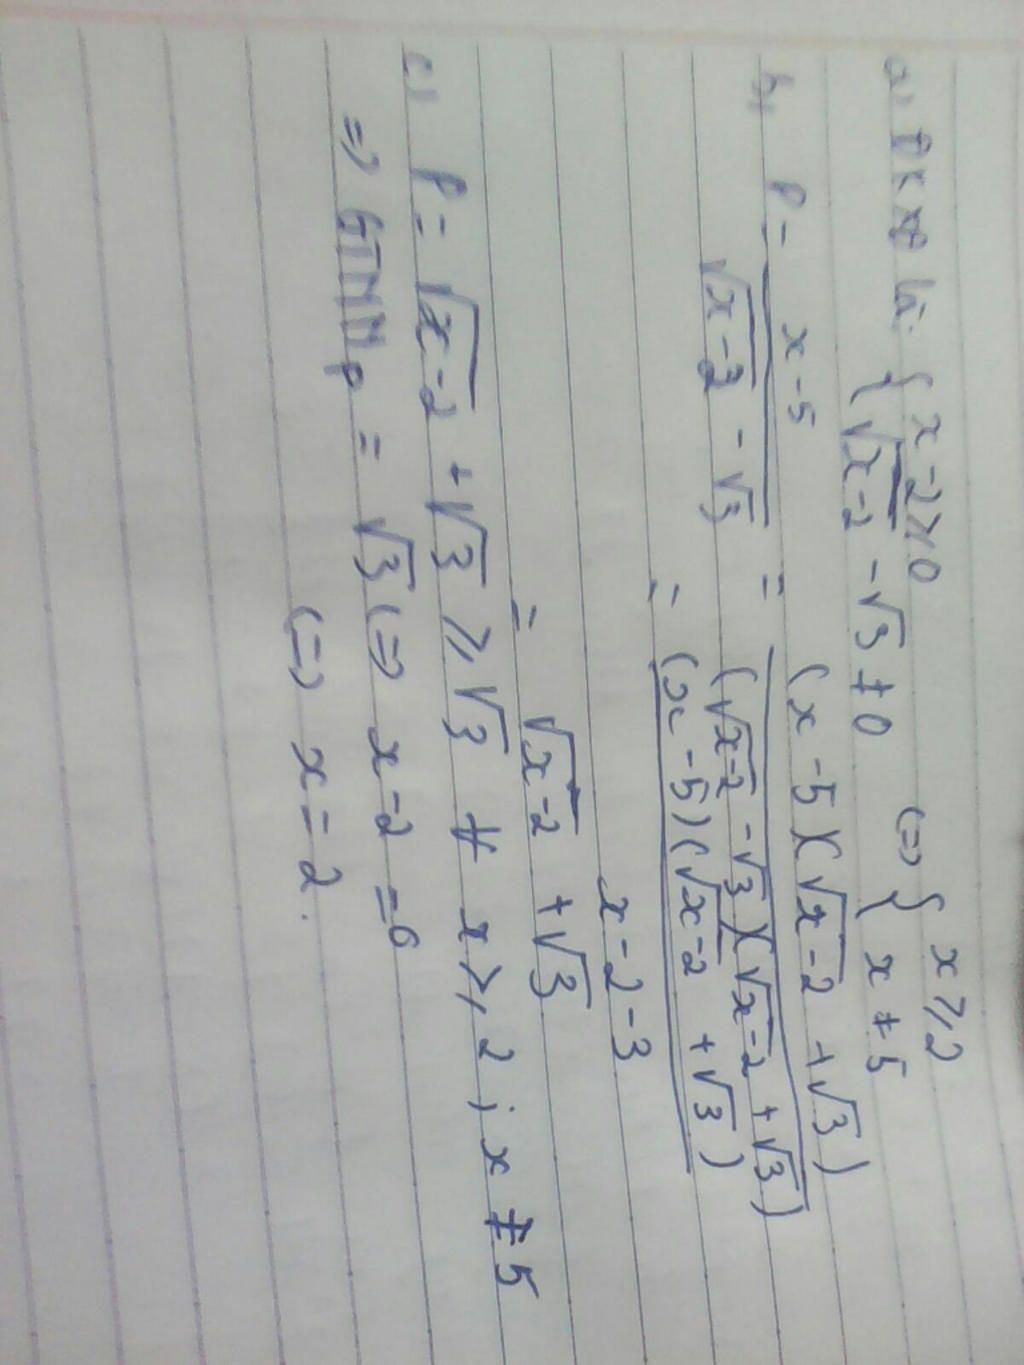 a, ĐKXĐ là: { x-2 ≥ 0 ⇔ { x ≥ 2
√x-2 - √3 ≠ 0 x ≠ 5
b, P = x-5 / √x-2 - √3 = (x-5)(√x-2 + √3) / (√x-2 - √3)(√x-2 + √3)
= (x-5)(√x-2 + √3) / x-2-3
= √x-2 + √3
c, P = √x-2 + √3 ≥ √3 ∀ x ≥ 2 ; x ≠ 5
⇒ GTNN P = √3 ⇔ x-2 = 0
⇔ x = 2.